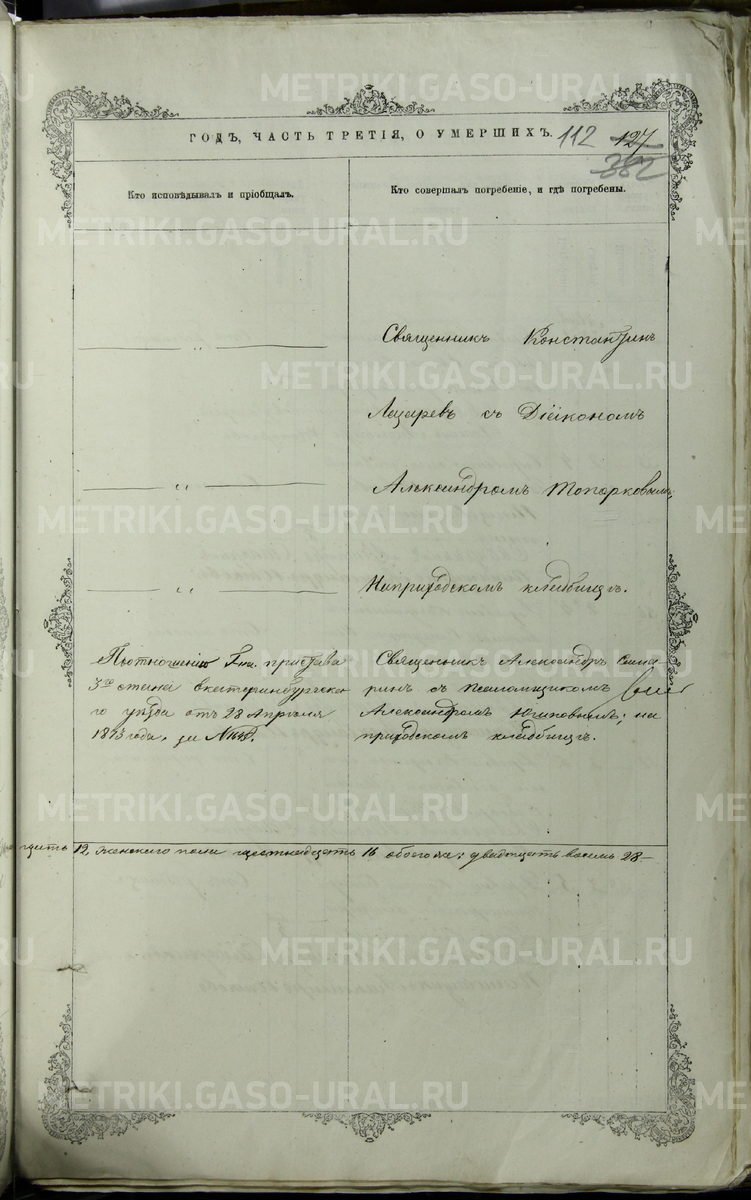 ГОДЪ, ЧАСТЬ ТРЕТІЯ, О УМЕРШИХЪ. 112 127
382
Кто исповѣдывалъ и пріобщалъ.
Кто совершалъ погребеніе, и гдѣ погребены.
Священникъ Константинъ
Лазаревъ съ Діакономъ
Александромъ Топорковымъ;
На приходскомъ кладбищѣ.
По отношенію Г-на пристава
3го стана Екатеринбургска
го уѣзда отъ 28 Апрѣля
1873 года за №
Священникъ Александръ
съ Псаломщикомъ
Александромъ на
приходскомъ кладбищѣ.
12, женскаго пола шестнадцать 16 обоего двадцать восемь 28
METRIKI.GASO-URAL.RU